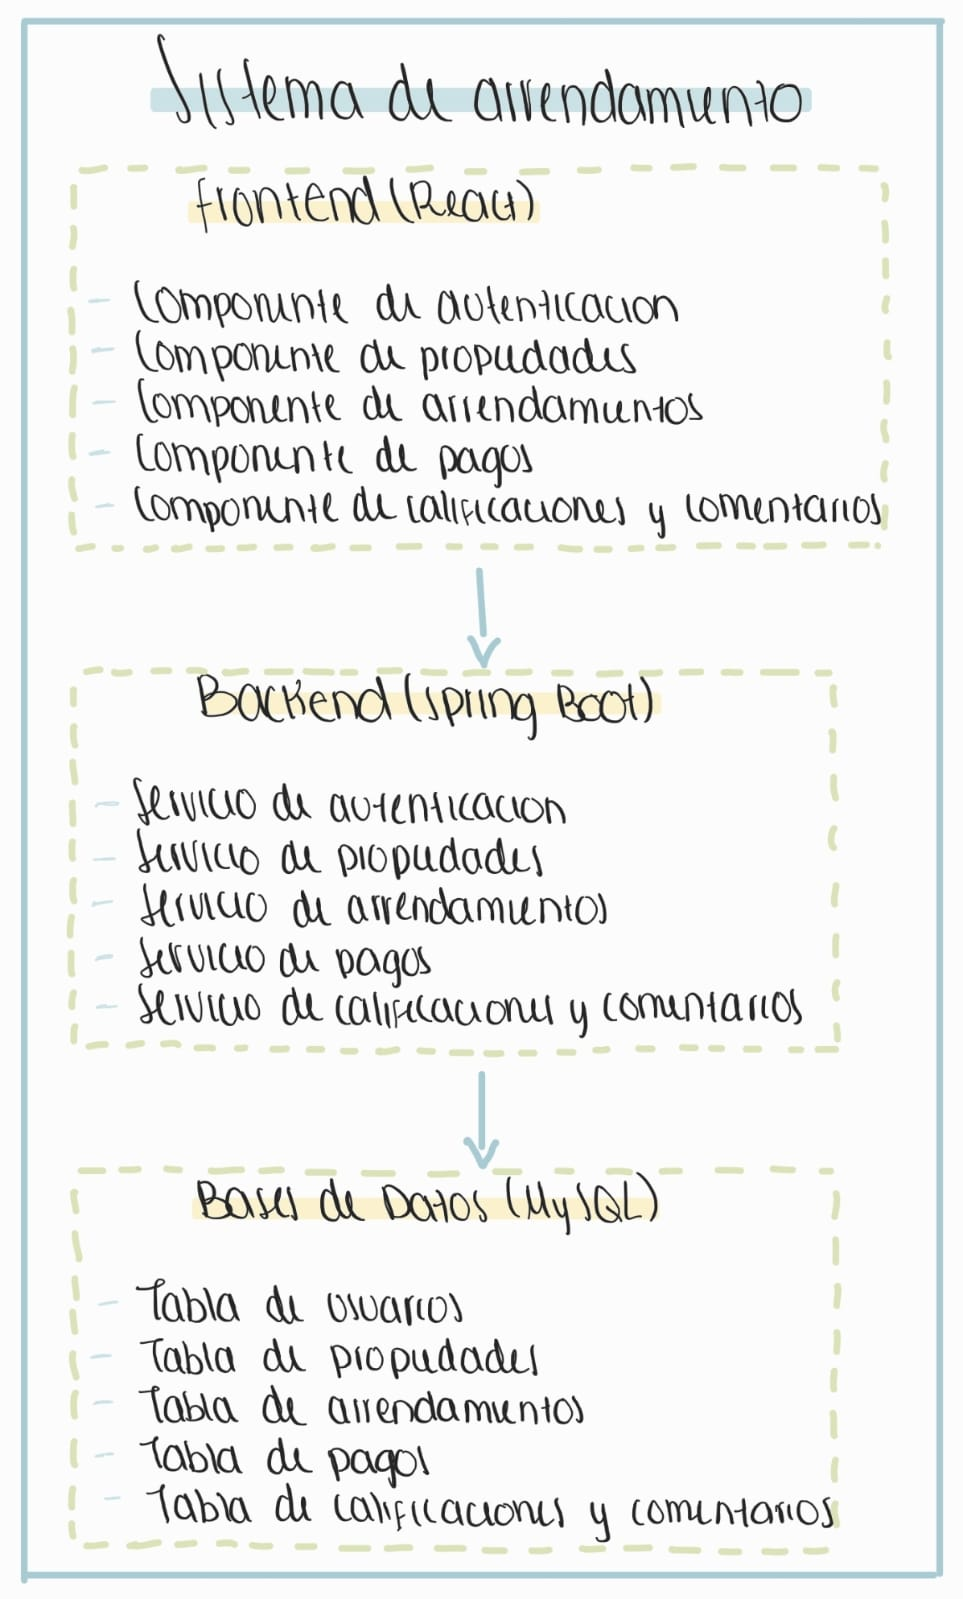 Sistema de arrendamiento
Frontend (React)
- Componente de autenticacion
- Componente de propiedades
- Componente de arrendamientos
- Componente de pagos
- Componente de calificaciones y comentarios
Backend (Spring Boot)
- Servicio de autenticacion
- Servicio de propiedades
- Servicio de arrendamientos
- Servicio de pagos
- Servicio de calificaciones y comentarios
Bases de Datos (MySQL)
- Tabla de usuarios
- Tabla de propiedades
- Tabla de arrendamientos
- Tabla de pagos
- Tabla de calificaciones y comentarios